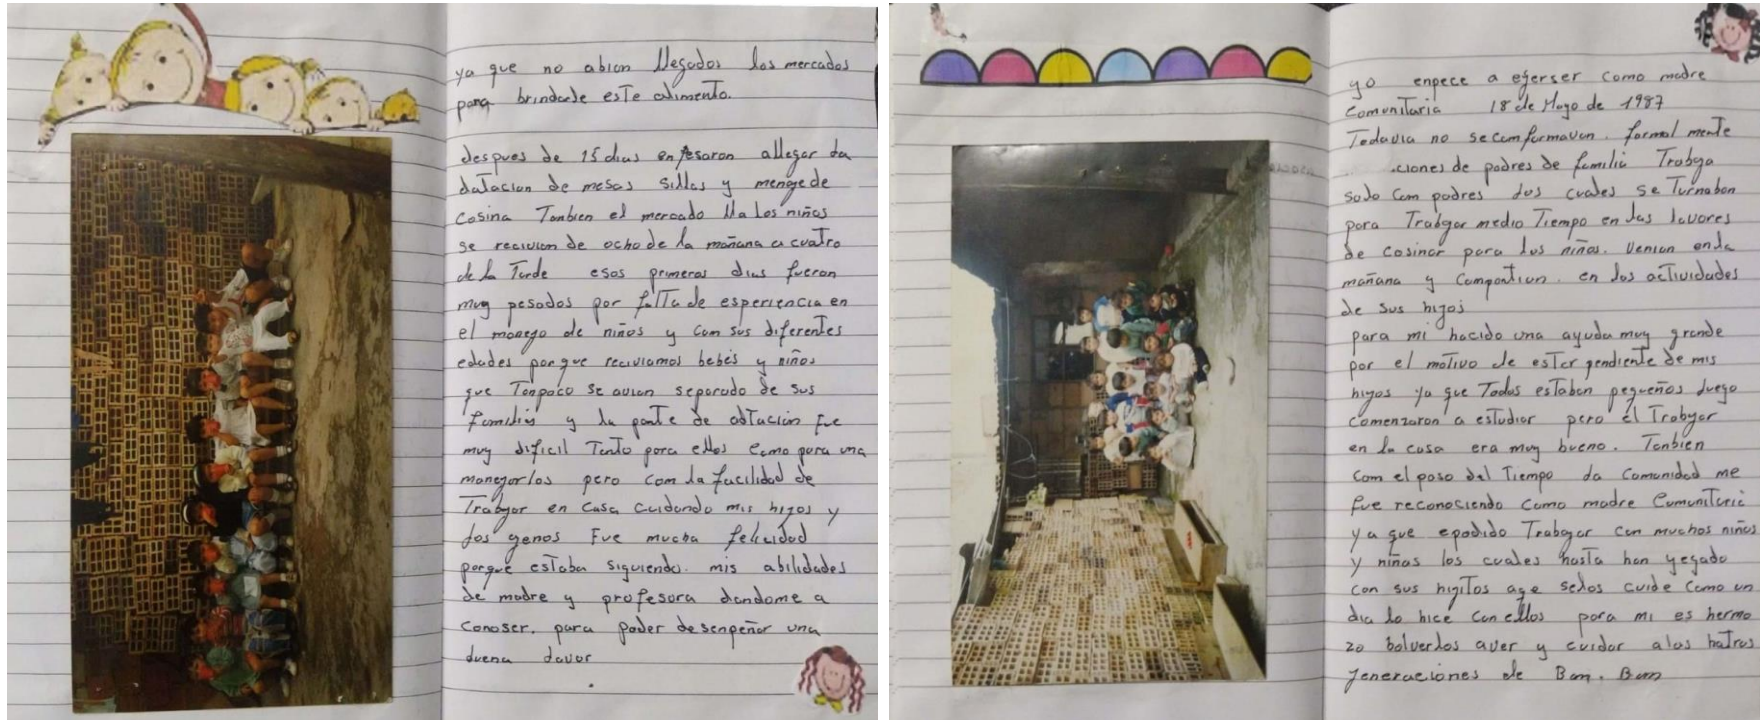 ya que no abian llegados los mercados
para brindarle este alimento.
despues de 15 dias enpesaron allegar la
datacion de mesas sillas y mengede
cosina Tanbien el mercado Lla los niños
se recivian de ocho de la mañana a cuatro
de la Tarde esos primeros dias fueron
muy pesados por fallTa de esperiencia en
el manego de niños y con sus diferentes
edades porque reciviamos bebés y niños
que Tanpoco se avian separado de sus
familias y la parte de adTacion fue
muy dificil Tanto para ellos como para una
manejarlos pero con la facilidad de
Trabajar en casa cuidando mis hijos y
los genos Fue mucha felicidad
porque estaba siguiendo. mis abilidades
de madre y profesora dandome a
conoser. para poder desenpeñar una
buena lavor
yo enpece a ejerser como madre
comuniTaria 18 de Mayo de 1987
Todavia no se conformavan. formal mente
ciones de padres de familia Trabaja
solo con padres los cuales se Turnaban
para Trabajar medio Tiempo en las lavores
de cosinar para los niños. venian en la
mañana y compartian. en las actividades
de sus hijos
para mi hacido una ayuda muy grande
por el motivo de estar pendiente de mis
hijos ya que Todos estaban pequeños luego
comenzaron a estudiar pero el Trabajar
en la casa era muy bueno. Tanbien
con el paso del Tiempo la comunidad me
fue reconociendo como madre comunitaria
ya que epodido Trabajar con muchos niños
y niñas los cuales hasta han yegado
con sus hijitos a que selos cuide como un
dia lo hice con ellos para mi es hermo
zo bolverlos aver y cuidar alas hotras
jeneraciones de Bam. Bam